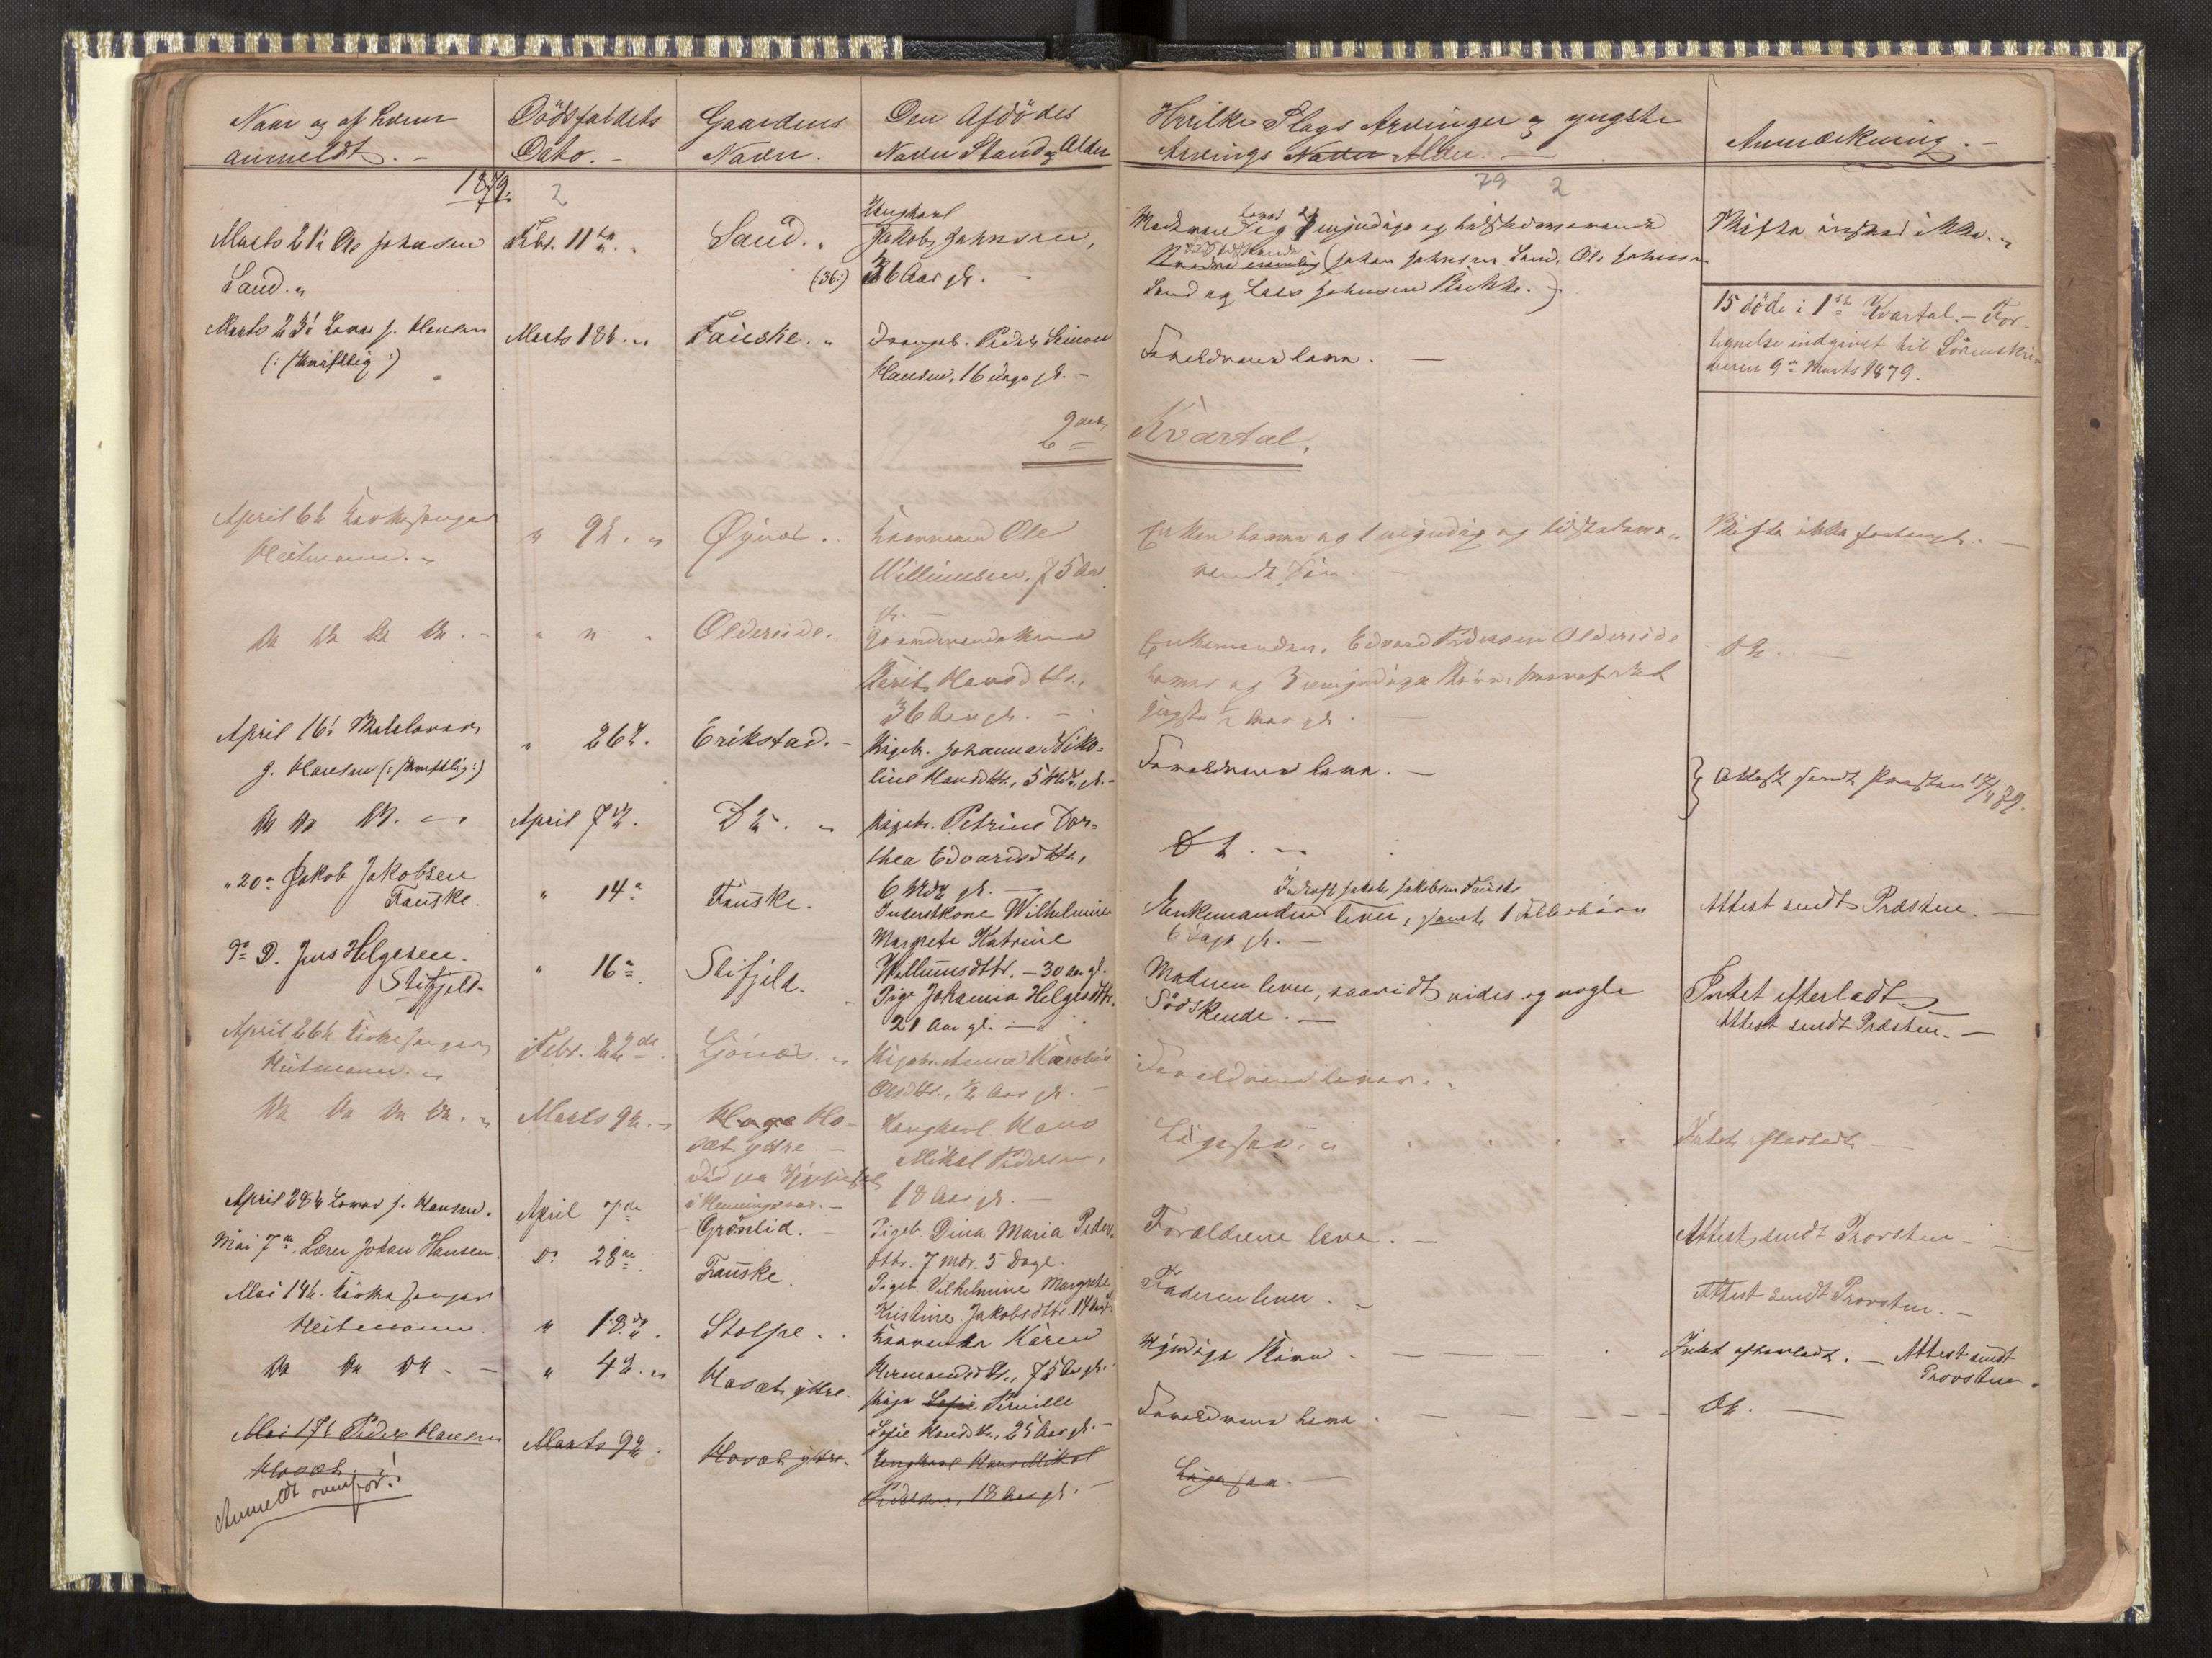 Naar og af hvem
anmeldt. -
Dödsfaldets
Dato. -
Gaardens
Navn.
Den Afdödes
Navn Stand og Alder
Hvilke Slags Arvinger og yngste
Arvings Navn Alder. -
Anmærkning. -
1879.
2
79 2
Marts 21 Ole Johnsen
Sand. "
Febr. 11te "
Sand. "
Ungkarl
Jakob Johnsen,
(36:) 36 Aar gl.
Moderen lever og myndige og tilstedeværende
Södskende (Johan Johnsen Sand, Ole Johnsen
Sand og Lars Johnsen
Skifte önskes ikke. "
Marts 23 Lærer J. Hansen
(: skriftlig :)
Marts 18de "
Fauske. "
Drengeb. Peder Simon
Hansen, 16 Uger gl. -
Forældrene leve. -
15 döde i 1ste Kvartal. - For-
tegnelse indgivet til Sörenskri-
veren 9de Marts 1879.
2det Kvartal.
April 6te Kirkesanger
Heitmann. "
" 9de "
Øynes
Ole
Willumsen, 75 Aar
gl.
Enken lever og 1 myndig og tilstedevæ-
rende Sön.
Skifte ikke forlangt. -
Do Do Do Do. -
" " "
Oldereide.
Gaardmandskone
Berit Hansdtr.,
36 Aar gl. -
Enkemanden Edvard Pedersen Oldereide
lever og 3 umyndige Börn, hvoraf det
yngste 1/2 Aar gl.
Do. -
April 16 Skolelærer
J. Hansen (: skriftlig :)
" 26de.
Erikstad. -
Pigeb. Johanna Niko-
line Hansdtr., 5 Mdr. gl. -
Forældrene leve. -
Attest sendt Provsten 17/4 79.
Do Do Do. -
April 7de.
Do. "
Pigeb. Petrine Dor-
thea Edvardsdtr.,
6 Mdr gl. -
Do. -
" 20de Jakob Jakobsen
Fauske.
" 14de
Fauske.
Inderstkone Wilhelmine
Margrete Katrine
Willumsdtr. - 30 Aar gl.
Inderst Jakob Jakobsen Fauske
Enkemanden lever, samt 1 Fællesbarn
6 Dage gl. -
Attest sendt Præsten. -
Do D. Jens Helgesen
Slifjeld.
" 16de
Slifjeld.
Pige Johanna Helgesdtr.
21 Aar gl. -
Moderen lever, saavidt vides og nogle
Södskende. -
Intet efterladt
Attest sendt Præsten. -
April 26de Kirkesanger
Heitmann. "
Febr. 22de.
Ljönes. "
Pigebarn Anna Karoline
Olsdtr., 1/2 Aar gl. -
Forældrene lever. "
Do Do Do Do. "
Marts 9de. -
Hage Ho-
sæt ydre. -
Död paa
i Henningsvær. -
Ungkarl Hans
Mikal Pedersen,
18 Aar gl. -
Ligesaa. "
Intet efterladt. -
April 28de Lærer J. Hansen.
April 7de
Grönlid. -
Pigeb. Dina Maria Peders-
dtr. 7 Mdr. 5 Dage.
Forældrene leve. -
Attest sendt Provsten. -
Mai 7de Lærer Johan Hansen.
Do 28de
Fauske.
Pigeb. Vilhelmine Margrethe
Kristine Jakobsdtr. 14
Faderen lever. -
Attest sendt Provsten. -
Mai 14de Kirkesanger
Heitmann.
" 18de.
Stolpe. .
Karen
Hermansdtr., 75 Aar gl.
Myndige Börn. -
Intet efterladt. - Attest sendt
Provsten.
Do Do Do - -
" 4de. "
Hosæt ydre.
Pige Sofie Pernille
Sofie Hansdtr., 25 Aar gl. -
Forældrene leve. -
Do. -
Mai 17de Peder Hansen
Hosæt. -
Anmeldt ovenfor!
Marts 9de.
Hosæt ydre.
Ungkarl Hans Mikal
Pedersen, 18 Aar gl. -
Ligesaa. -